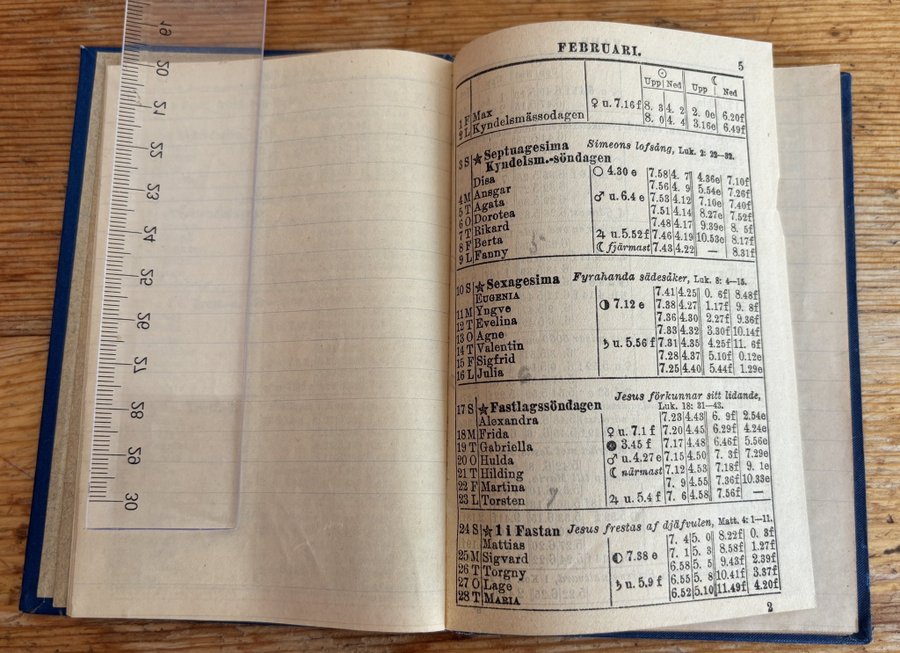 19
20
21
22
23
24
25
26
27
28
29
30
FEBRUARI.
5
☉ ☾
Upp Ned Upp Ned
1 F Max ♀ u. 7.16 f 8. 3 4. 2 2. 0e 6.20f
2 L Kyndelsmässodagen 8. 0 4. 4 3.16e 6.49f
3 S ★ Septuagesima Simeons lofsång, Luk. 2: 22—32.
Kyndelsm.-söndagen
Disa ○ 4.30 e 7.58 4. 7 4.36e 7.10f
4 M Ansgar 7.56 4. 9 5.54e 7.26f
5 T Agata ♂ u. 6.4 e 7.53 4.12 7.10e 7.40f
6 O Dorotea 7.51 4.14 8.27e 7.52f
7 T Rikard 7.48 4.17 9.39e 8. 5f
8 F Berta ♃ u. 5.52 f 7.46 4.19 10.53e 8.17f
9 L Fanny ☾ fjärmast 7.43 4.22 — 8.31f
10 S ★ Sexagesima Fyrahanda sädesåker, Luk. 8: 4—15.
EUGENIA 7.41 4.25 0. 6f 8.48f
11 M Yngve ◑ 7.12 e 7.38 4.27 1.17f 9. 8f
12 T Evelina 7.36 4.30 2.27f 9.36f
13 O Agne 7.33 4.32 3.30f 10.14f
14 T Valentin ♄ u. 5.56 f 7.31 4.35 4.25f 11. 6f
15 F Sigfrid 7.28 4.37 5.10f 0.12e
16 L Julia 7.25 4.40 5.44f 1.29e
17 S ★ Fastlagssöndagen Jesus förkunnar sitt lidande,
Luk. 18: 31—43.
Alexandra 7.23 4.43 6. 9f 2.54e
18 M Frida ♀ u. 7.1 f 7.20 4.45 6.29f 4.24e
19 T Gabriella ● 3.45 f 7.17 4.48 6.46f 5.56e
20 O Hulda ♂ u. 4.27 e 7.15 4.50 7. 3f 7.29e
21 T Hilding ☾ närmast 7.12 4.53 7.18f 9. 1e
22 F Martina 7. 9 4.55 7.36f 10.33e
23 L Torsten ♃ u. 5.4 f 7. 6 4.58 7.56f —
24 S ★ 1 i Fastan Jesus frestas af djäfvulen, Matt. 4: 1—11.
Mattias 7. 4 5. 0 8.22f 0. 3f
25 M Sigvard ◐ 7.38 e 7. 1 5. 3 8.58f 1.27f
26 T Torgny 6.58 5. 5 9.43f 2.39f
27 O Lage ♄ u. 5.9 f 6.55 5. 8 10.41f 3.37f
28 T MARIA 6.52 5.10 11.49f 4.20f
2